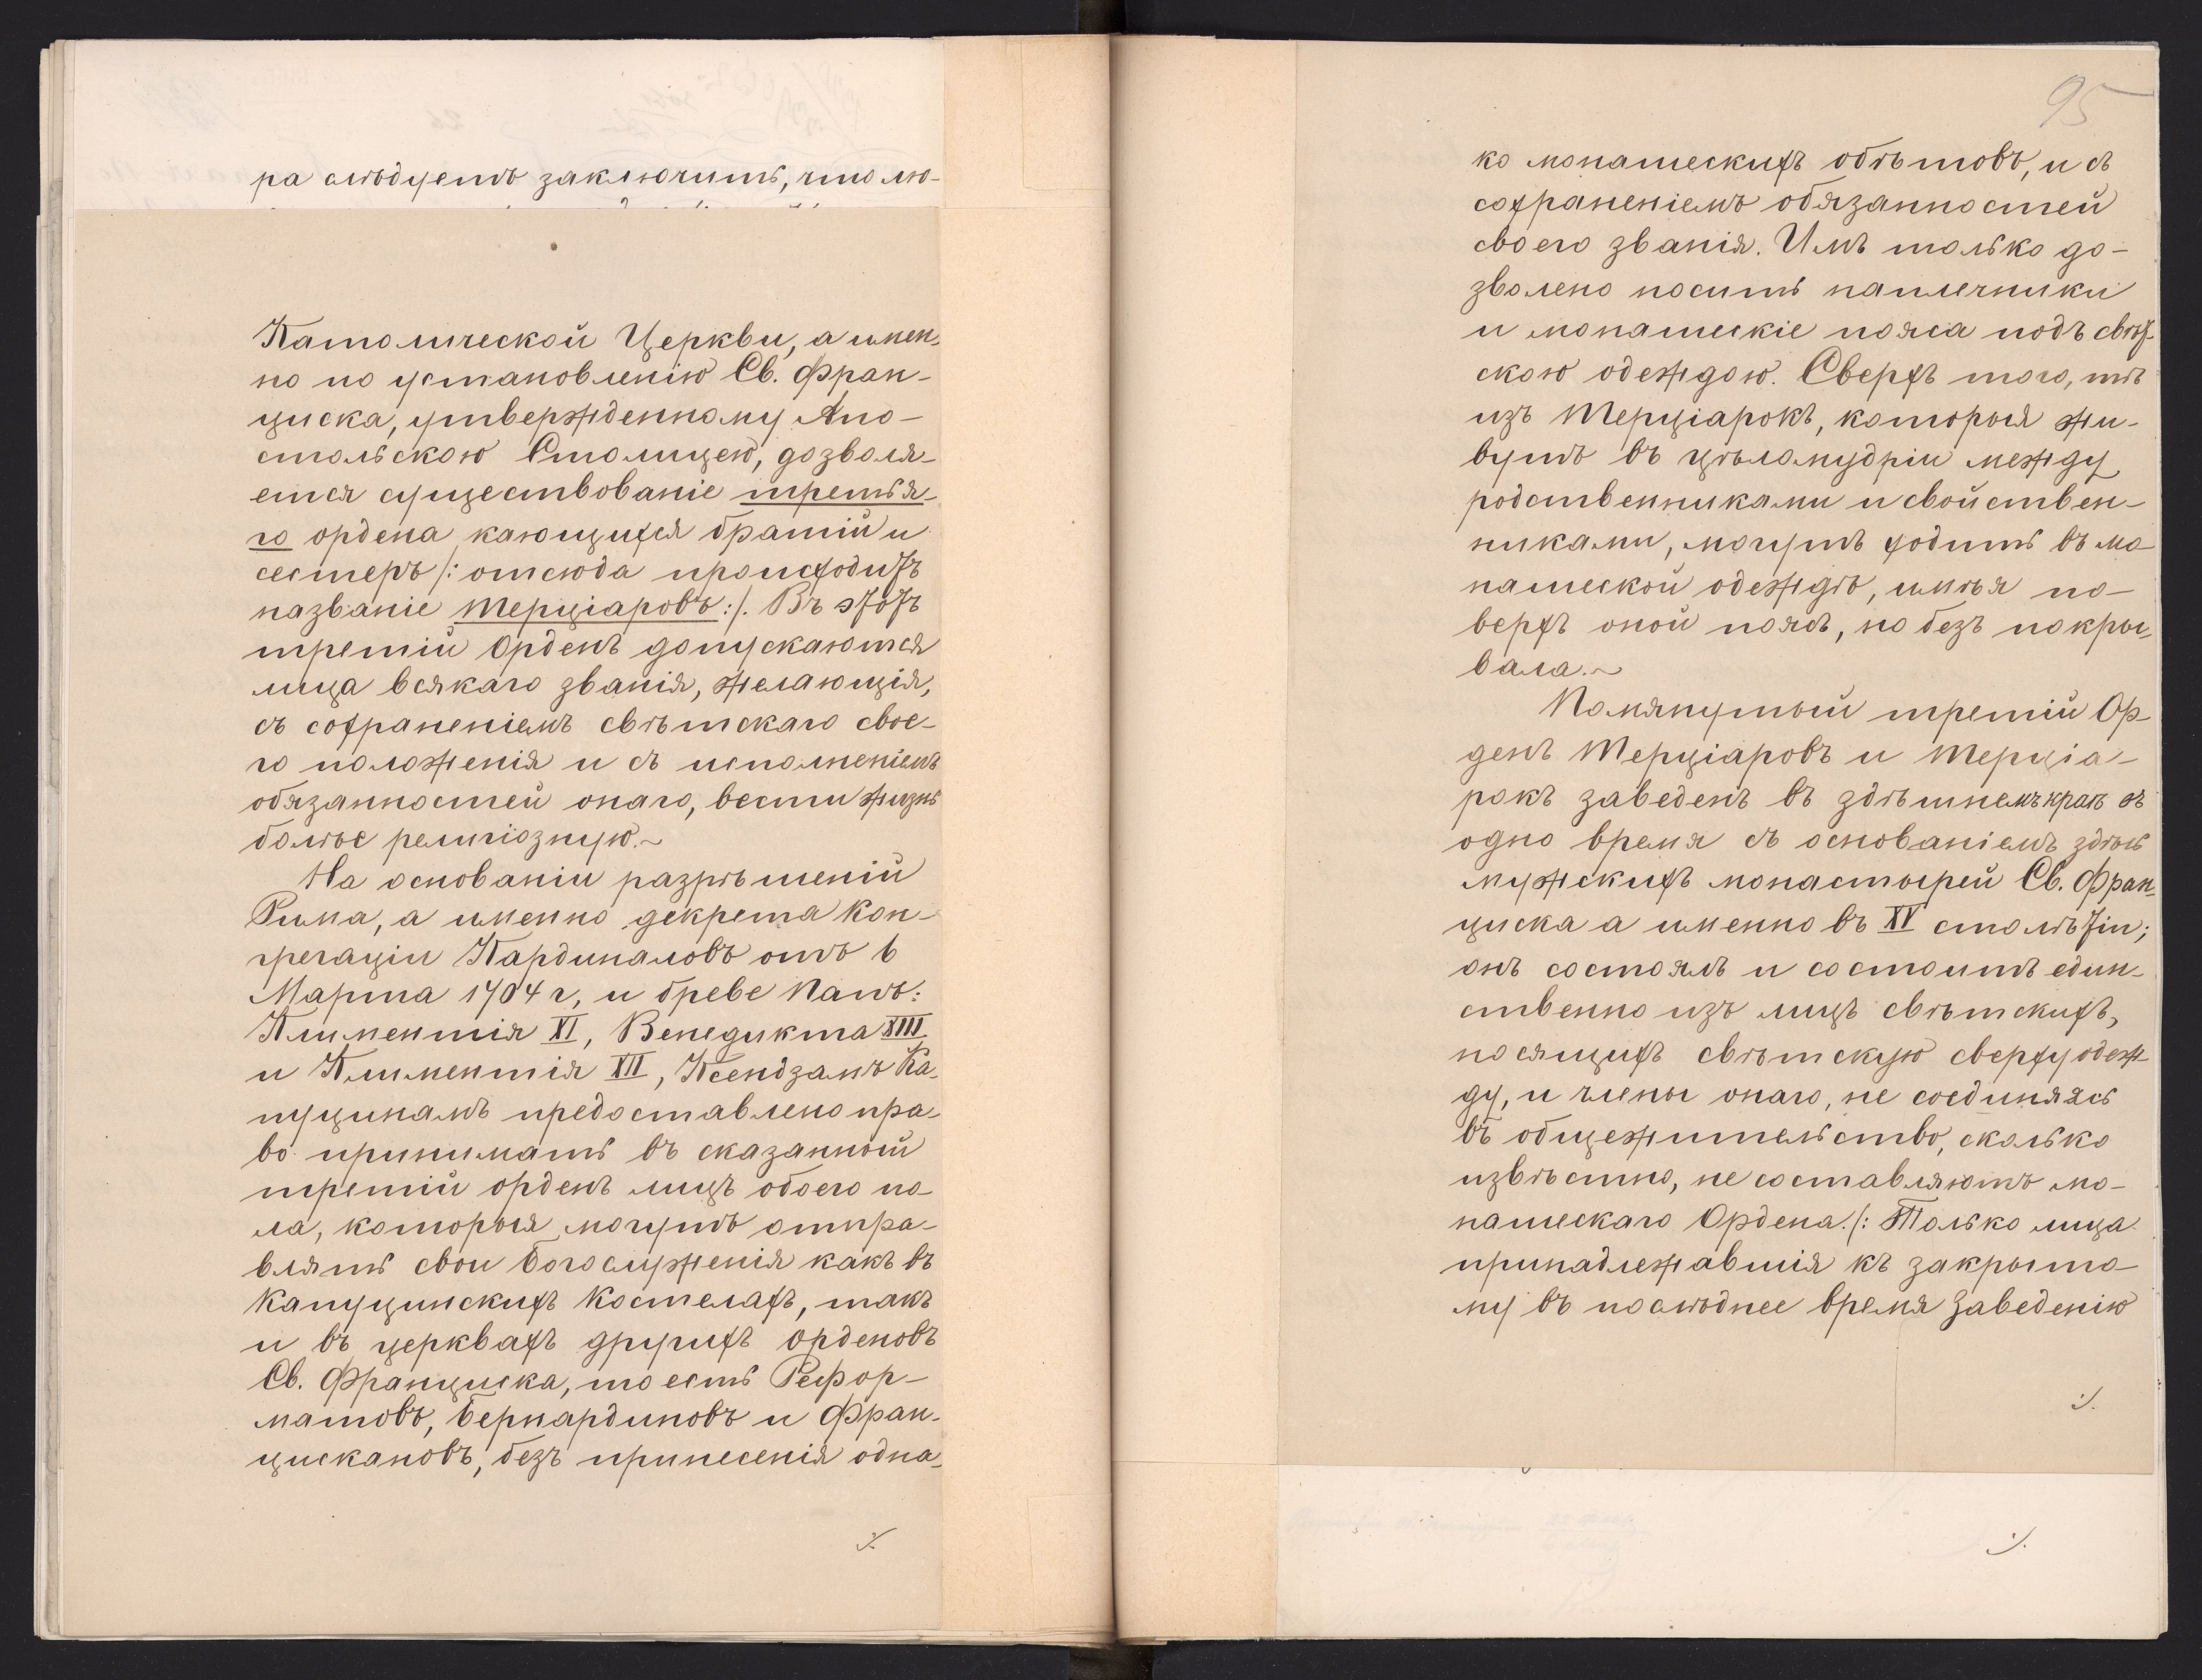 ра слѣдуетъ заключить, что лю-
Католической Церкви, а имен-
но по установленію Св. Фран-
циска, утвержденному Апо-
стольскою Столицею, дозволя-
ется существованіе третья-
го ордена кающихся братій и
сестеръ /: отсюда происходитъ
названіе Терціаровъ :/. Въ этотъ
третій Орденъ допускаются
лица всякаго званія, желающія,
съ сохраненіемъ свѣтскаго свое-
го положенія и съ исполненіемъ
обязанностей онаго, вести жизнь
болѣе религіозную.~
На основаніи разрѣшеній
Рима, а именно декрета Кон-
грегаціи Кардиналовъ отъ 6
Марта 1704 г, и бреве Папъ:
Климентія XI, Венедикта XIII
и Климентія XII, Ксендзамъ Ка-
пуцинамъ предоставлено пра-
во принимать въ сказанный
третій орденъ лицъ обоего по-
ла, которыя могутъ отпра-
влять свои богослуженія какъ въ
Капуцинскихъ Костелахъ, такъ
и въ церквахъ другихъ орденовъ
Св. Франциска, то есть Рефор-
матовъ, Бернардиновъ и Фран-
цискановъ, безъ принесенія одна-
./.
95
ко монашескихъ обѣтовъ, и съ
сохраненіемъ обязанностей
своего званія. Имъ только до-
зволено носить наплечники
и монашескіе пояса подъ свѣт-
скою одеждою. Сверхъ того, тѣ
изъ Терціарокъ, которыя жи-
вутъ въ цѣломудріи между
родственниками и свойствен-
никами, могутъ ходить въ мо-
нашеской одеждѣ, имѣя по-
верхъ оной поясъ, но безъ покры-
вала.~
Помянутый третій Ор-
денъ Терціаровъ и Терціа-
рокъ заведенъ въ здѣшнемъ краѣ въ
одно время съ основаніемъ здѣсь
мужскихъ монастырей Св. Фран-
циска а именно въ XV столѣтіи;
онъ состоялъ и состоитъ един-
ственно изъ лицъ свѣтскихъ,
носящихъ свѣтскую сверху одеж-
ду, и члены онаго, не соединяясь
въ общежительство, сколько
извѣстно, не составляютъ мо-
нашескаго Ордена. /: Только лица
принадлежавшія къ закрыто-
му въ послѣднее время заведенію
./.
./.